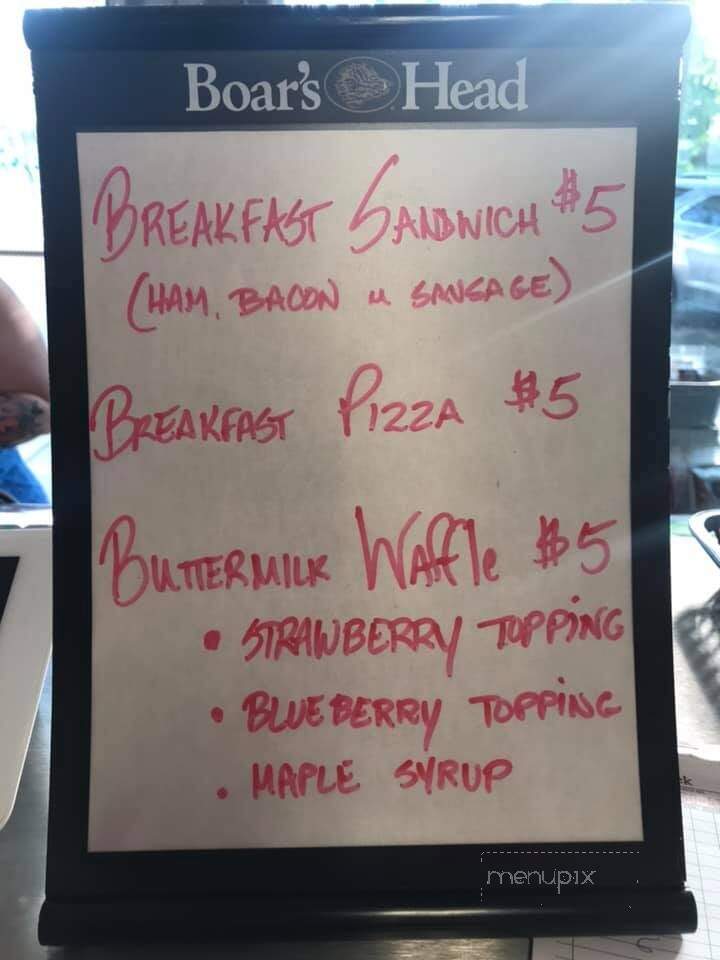 Boar's Head
BREAKFAST SANDWICH $5
(HAM, BACON u SAUSAGE)
BREAKFAST PIZZA $5
BUTTERMILK WAffle $5
• STRAWBERRY TOPPING
• BLUEBERRY TOPPING
• MAPLE SYRUP
menupix